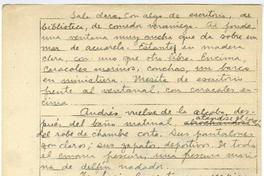 Sala clara, con algo de escritorio, de
biblioteca, de comedor veraniego. Al fondo
una ventana muy ancha que da sobre un
mar de acuarela. Estantes en madera
clara, con uno que otro libro. Encima,
caracoles marinos, conchas, un barco
en miniatura. Mesita de escritorio
frente al ventanal, con caracoles en-
cima
Andrés vuelve de la alcoba, des-
pués del baño matinal,
del robe de chambre corto. Sus pantalones
son claros; sus zapatos, deportivos. Es todo
marina
de delfín nadador.